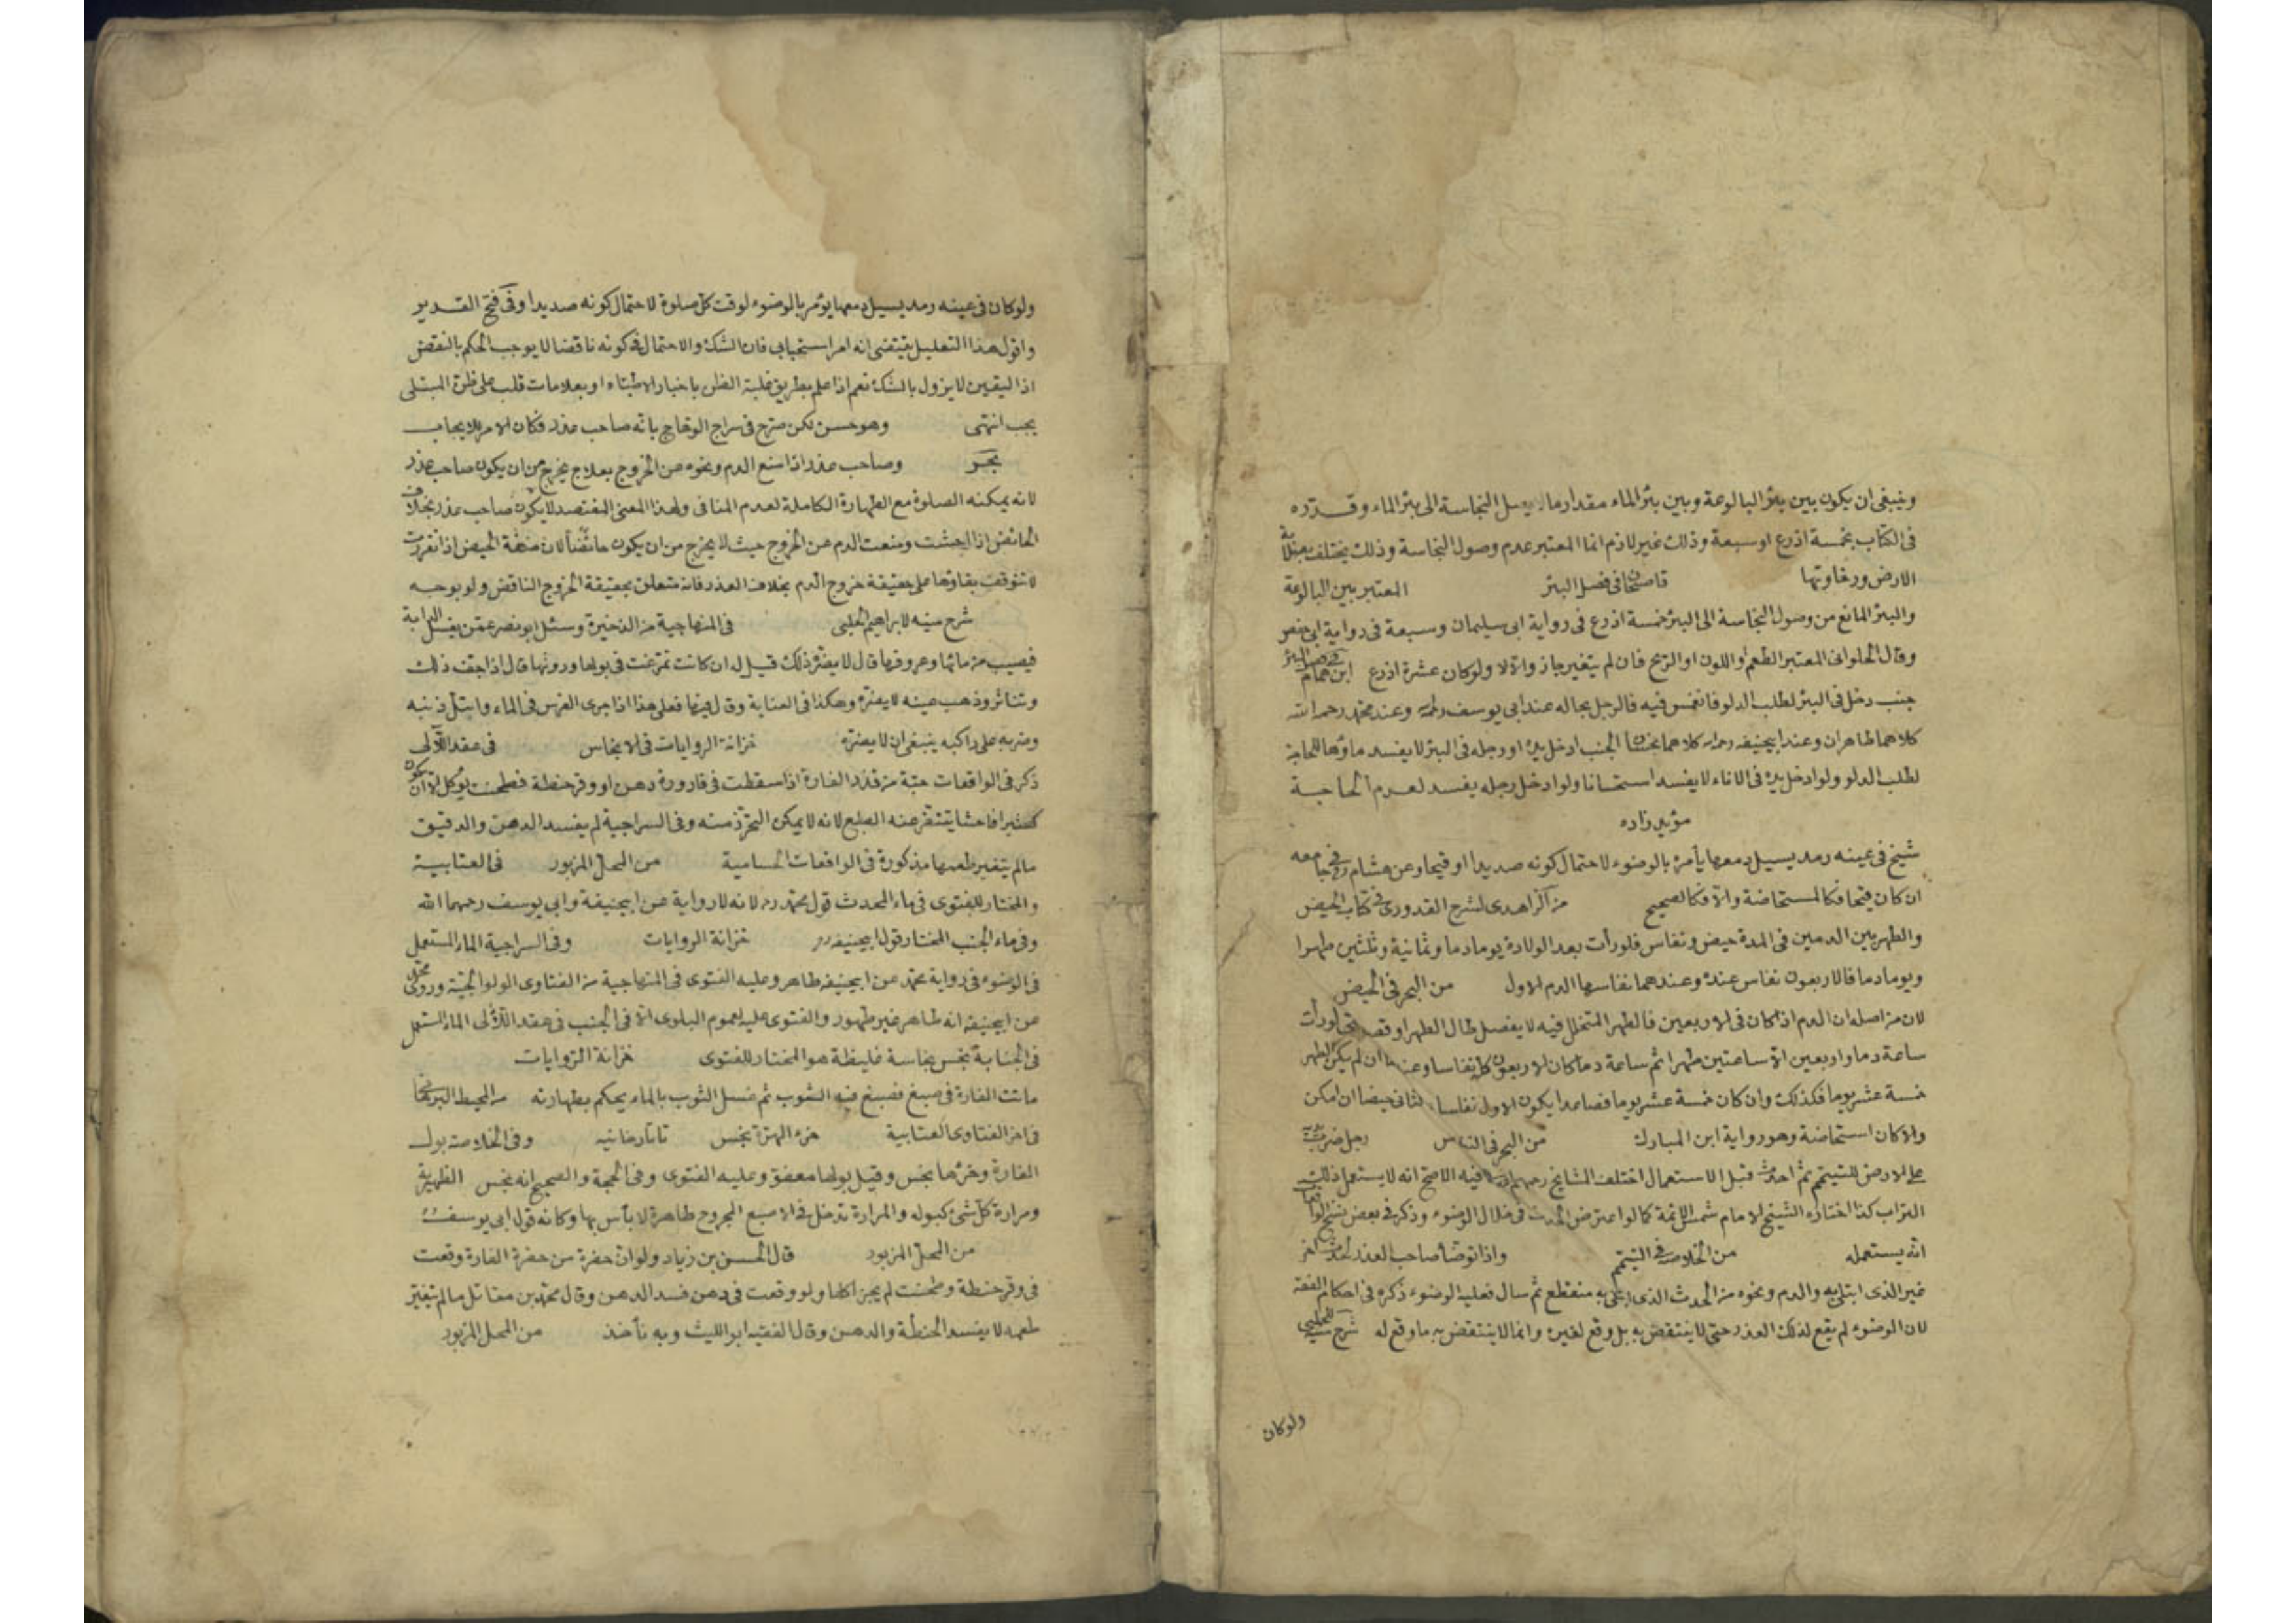 وينبغى ان يكون بين بئر البالوعة وبين بئر الماء مقدار ما لا يصل النجاسة الى بئر الماء وقدره
فى الكتاب بخمسة اذرع او سبعة وذلك غير لازم انما المعتبر عدم وصول النجاسة وذلك يختلف بصلابة
الارض ورخاوتها قاضيخان فى فصل البئر المعتبر بين البالوعة
والبئر المانع من وصول النجاسة الى البئر خمسة اذرع فى رواية ابى سليمان وسبعة فى رواية ابى حفص
وقال الحلوانى المعتبر الطعم او اللون او الريح فان لم يتغير جاز والا لا ولو كان عشرة اذرع ابن همام فى فصل البئر
جنب دخل فى البئر لطلب الدلو فانغمس فيه فالرجل بحاله عند ابى يوسف رحمه الله وعند محمد رحمه الله
كلاهما طاهران وعند ابيحنيفه رحمه الله كلاهما نجسان الجنب ادخل يده او رجله فى البئر لا يفسد ماؤها للحاجة
لطلب الدلو ولو ادخل يده فى الاناء لا يفسد استحسانا ولو ادخل رجله يفسد لعدم الحاجة
مؤيد زاده
شيخ فى عينه رمد يسيل دمعها يأمره بالوضوء لاحتمال كونه صديدا او قيحا وعن هشام فى جامعه
ان كان قيحا فكالمستحاضة والا فكالصحيح من الزاهدى لشرح القدورى فى كتاب الحيض
والطهر بين الدمين فى المدة حيض ونفاس فلو رأت بعد الولادة يوما دما وثمانية وثلثين طهرا
ويوما دما فالاربعون نفاس عنده وعندهما نفاسها الدم الاول من البحر فى الحيض
لان من اصله ان الدم اذا كان فى الاربعين فالطهر المتخلل فيه لا يفصل طال الطهر او قصر حتى لو رأت
ساعة دما واربعين الا ساعتين طهرا ثم ساعة دما كان الاربعون كلها نفاسا وعندهما ان لم يكن الطهر
خمسة عشر يوما فكذلك وان كان خمسة عشر يوما فصاعدا يكون الاول نفاسا والثانى حيضا ان امكن
والا كان استحاضة وهو رواية ابن المبارك من البحر فى النفاس رجل ضرب يديه
على الارض للتيمم ثم احدث قبل الاستعمال اختلف المشايخ رحمهم الله فيه الاصح انه لا يستعمل ذلك
التراب كذا اختاره الشيخ الامام شمس الائمة كما لو اعترض الحدث فى خلال الوضوء وذكر فى بعض نسخ الواقعات
انه يستعمله من الخلاصه فى التيمم واذا توضأ صاحب العذر لحدث آخر
غير الذى ابتلى به والدم ونحوه من الحدث الذى ابتلى به منقطع ثم سال فعليه الوضوء ذكره فى احكام الفقه
لان الوضوء لم يقع لذلك العذر حتى لا ينتقض به بل وقع لغيره وانما لا ينتقض به ما وقع له شرح منيه للحلبى
ولو كان
ولو كان فى عينه رمد يسيل دمعها يؤمر بالوضوء لوقت كل صلوة لاحتمال كونه صديدا وفى فتح القدير
واقول هذا التعليل يقتضى انه امر استحبابى فان الشك والاحتمال فى كونه ناقضا لا يوجب الحكم بالنقض
اذ اليقين لا يزول بالشك نعم اذا علم بطريق غلبة الظن باخبار الاطباء او بعلامات تغلب على ظن المبتلى
يجب انتهى وهو حسن لكن صرح فى سراج الوهاج بانه صاحب عذر فكان الامر للايجاب
بحر وصاحب عذر اذا منع الدم ونحوه عن الخروج بعلاج يخرج من ان يكون صاحب عذر
لانه يمكنه الصلوة مع الطهارة الكاملة لعدم المنافى ولهذا المعنى المفتصد لا يكون صاحب عذر بخلاف
الحائض اذا احتشت ومنعت الدم عن الخروج حيث لا يخرج من ان يكون حائضا لان صفة الحيض اذا تقررت
لا تتوقف بقاؤها على حقيقة خروج الدم بخلاف العذر فانه متعلق بحقيقة الخروج الناقض ولو بوجه
شرح منيه لابراهيم الحلبى فى المنهاجية من الذخيرة وسئل ابو نصر عمن يغسل الدابة
فيصيب من مائها وعروقها قال لا يضره ذلك قيل له ان كانت تمرغت فى بولها وروثها قال اذا جف ذلك
وتناثر وذهب عينه لا يضره وهكذا فى العتابية وقال فيها فعلى هذا اذا جرى الفرس فى الماء وابتل ذنبه
وضربه على راكبه ينبغى ان لا يضره خزانة الروايات فى الانجاس فى عقد اللآلى
ذكر فى الواقعات حبة من قذر الفارة اذا سقطت فى قارورة دهن او وقر حنطة فطحنت يؤكل الا ان يكون
كثيرا فاحشا يتنفر عنه الطبع لانه لا يمكن التحرز منه وفى السراجية لم يفسد الدهن والدقيق
ما لم يتغير طعمها مذكورة فى الواقعات الحسامية من المحل المزبور فى العتابية
والمختار للفتوى فى ماء المحدث قول محمد رحمه الله لانه لا رواية عن ابيحنيفة وابى يوسف رحمهما الله
وفى ماء الجنب المختار قول ابيحنيفه رحمه الله خزانة الروايات وفى السراجية الماء المستعمل
فى الوضوء فى رواية محمد عن ابيحنيفه طاهر وعليه الفتوى فى المنهاجية من الفتاوى الولوالجية وروى محمد
عن ابيحنيفه انه طاهر غير طهور والفتوى عليه لعموم البلوى الا فى الجنب فى عقد اللآلى الماء المستعمل
فى الجنابة نجس نجاسة غليظة هو المختار للفتوى خزانة الروايات
ماتت الفارة فى صبغ فصبغ فيه الثوب ثم غسل الثوب بالماء يحكم بطهارته من المحيط البرهانى
فى اخر الفتاوى العتابية خرء الهرة نجس تاتارخانيه وفى الخلاصه بول
الفارة وخرؤها نجس وقيل بولها معفو وعليه الفتوى وفى الحجة والصحيح انه نجس الظهيرية
ومرارة كل شئ كبوله والمرارة تدخل فى الاصبع المجروح طاهرة لا بأس بها وكانه قول ابى يوسف
من المحل المزبور قال الحسن بن زياد ولو ان حفرة من حفرة الفارة وقعت
فى وقر حنطة وطحنت لم يجز اكلها ولو وقعت فى دهن فسد الدهن وقال محمد بن مقاتل ما لم يتغير
طعمه لا يفسد الحنطة والدهن وقال الفقيه ابو الليث وبه نأخذ من المحل المزبور